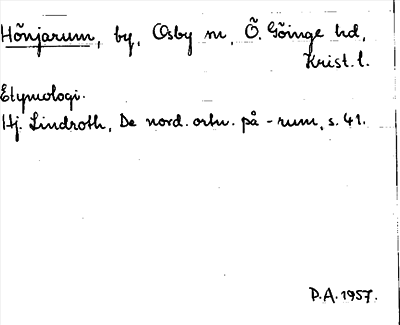 Hönjarum, by, Osby sn, Ö. Göinge hd,
Krist. l.
Etymologi.
Hj. Lindroth, De nord. ortn. på -rum, s. 41.
P.A. 1957.